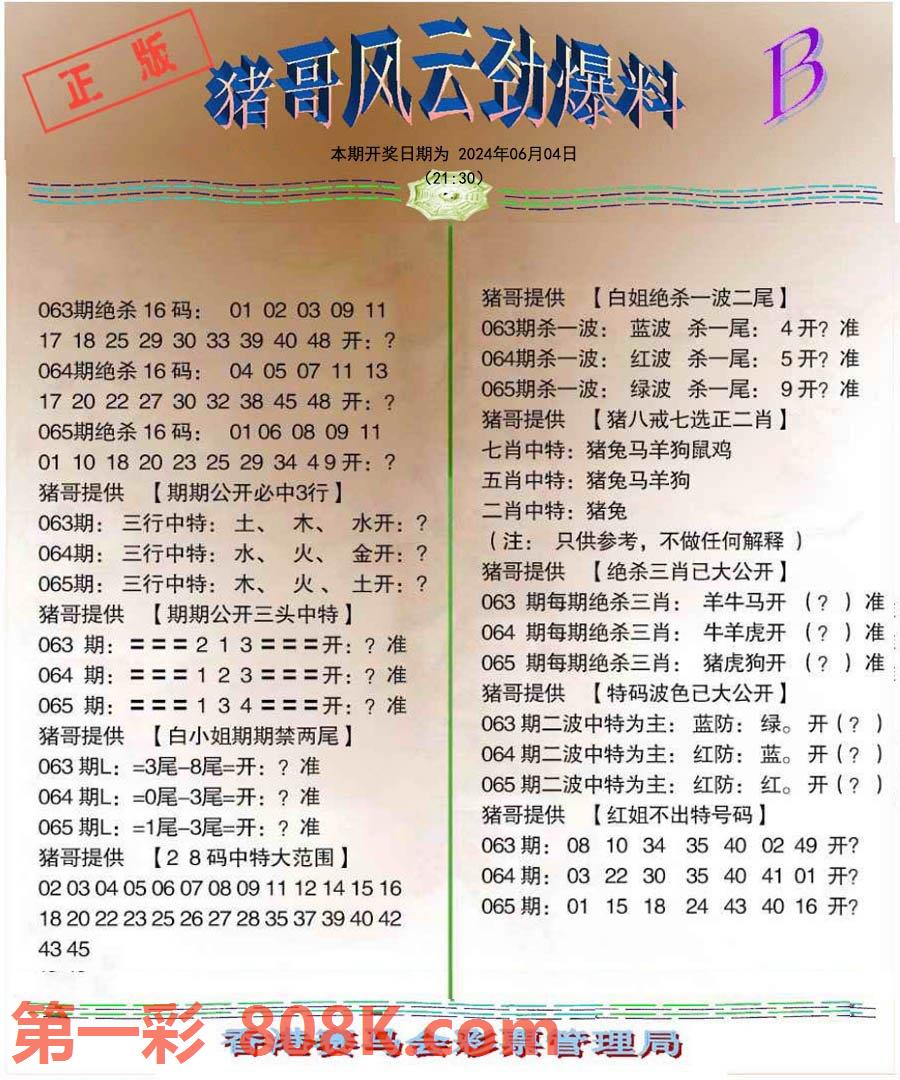 正版
猪哥风云劲爆料
B
本期开奖日期为 2024年06月04日
（21:30）
063期绝杀16码： 01 02 03 09 11
17 18 25 29 30 33 39 40 48 开：?
064期绝杀16码： 04 05 07 11 13
17 20 22 27 30 32 38 45 48 开：?
065期绝杀16码： 01 06 08 09 11
01 10 18 20 23 25 29 34 4 9 开：?
猪哥提供 【期期公开必中3行】
063期： 三行中特： 土、 木、 水开：?
064期： 三行中特： 水、 火、 金开：?
065期： 三行中特： 木、 火、 土开：?
猪哥提供 【期期公开三头中特】
063 期：〓〓〓2 1 3〓〓〓开：? 准
064 期：〓〓〓1 2 3〓〓〓开：? 准
065 期：〓〓〓1 3 4〓〓〓开：? 准
猪哥提供 【白小姐期期禁两尾】
063 期L：=3尾–8尾=开：? 准
064 期L：=0尾–3尾=开：? 准
065 期L：=1尾–3尾=开：? 准
猪哥提供 【2 8码中特大范围】
02 03 04 05 06 07 08 09 11 12 14 15 16
18 20 22 23 25 26 27 28 35 37 39 40 42
43 45
猪哥提供 【白姐绝杀一波二尾】
063期杀一波： 蓝波 杀一尾： 4 开? 准
064期杀一波： 红波 杀一尾： 5 开? 准
065期杀一波： 绿波 杀一尾： 9 开? 准
猪哥提供 【猪八戒七选正二肖】
七肖中特：猪兔马羊狗鼠鸡
五肖中特：猪兔马羊狗
二肖中特：猪兔
（注： 只供参考，不做任何解释 ）
猪哥提供 【绝杀三肖已大公开】
063 期每期绝杀三肖： 羊牛马开 （? ）准
064 期每期绝杀三肖： 牛羊虎开 （? ）准
065 期每期绝杀三肖： 猪虎狗开 （? ）准
猪哥提供 【特码波色已大公开】
063 期二波中特为主： 蓝防： 绿。 开（? ）
064 期二波中特为主： 红防： 蓝。 开（? ）
065 期二波中特为主： 红防： 红。 开（? ）
猪哥提供 【红姐不出特号码】
063 期： 08 10 34 35 40 02 49 开?
064 期： 03 22 30 35 40 41 01 开?
065 期： 01 15 18 24 43 40 16 开?
第一彩 808K.com
香港赛马会彩票管理局